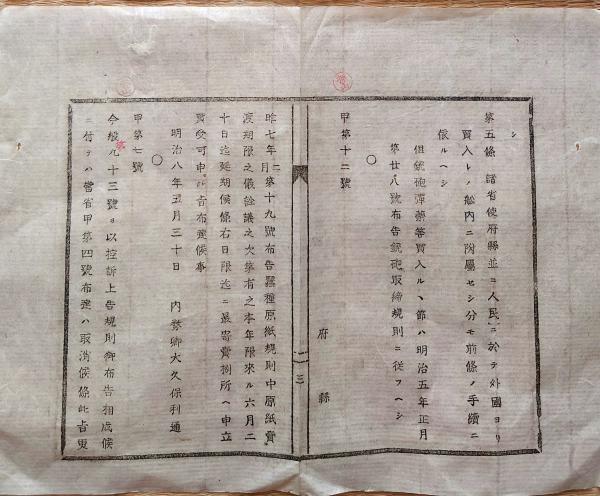 シ
第五條 諸省使府縣並ニ人民ニ於テ外國ヨリ
買入レノ舩内ニ附屬セシ分モ前條ノ手續ニ
依ルヘシ
但銃砲彈藥等買入ルヽ節ハ明治五年正月
第廿八號布告銃砲取締規則ニ從フヘシ
〇
甲第十二號
府縣
三
昨七年二月第十九號布告蠶種原紙規則中原紙賣
渡期限之儀詮議之次第有之本年限來ル六月二
十日迄延期候條右日限迄ニ最寄賣捌所ヘ申立
買受可申此旨布達候事
明治八年五月三十日 内務卿大久保利通
〇
甲第七號
今般第九十三號ヲ以控訴上告規則御布告相成候
ニ付テハ當省甲第四號布達ハ取消候條此旨更